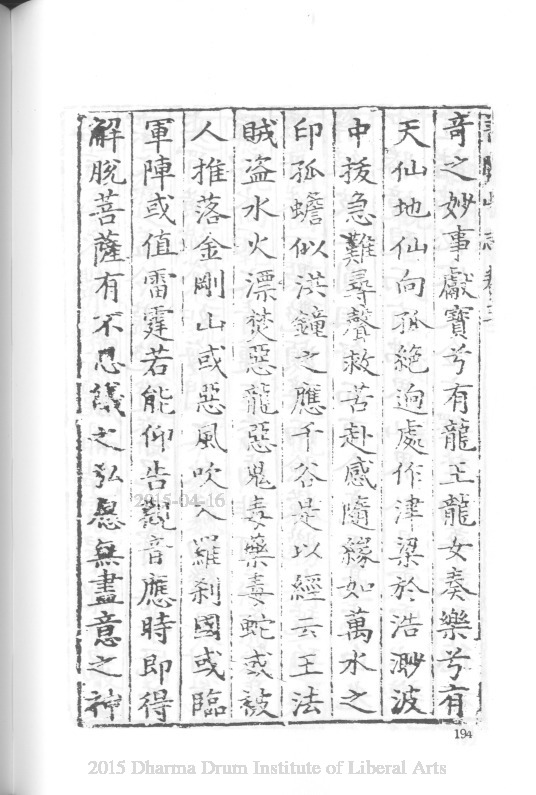 奇之妙事獻寶兮有龍王龍女奏樂兮有
天仙地仙向孤絶逈處作津梁於浩渺波
中拔急難尋聲救苦赴感隨緣如萬水之
印孤蟾似洪鐘之應千谷是以經云王法
賊盗水火漂焚惡龍惡鬼毒藥毒蛇或被
人推落金剛山或惡風吹入羅刹國或臨
軍陣或值雷霆若能仰告觀音應時即得
解脫菩薩有不思儀之弘慈無盡意之神
194
2015-04-16
2015 Dharma Drum Institute of Liberal Arts